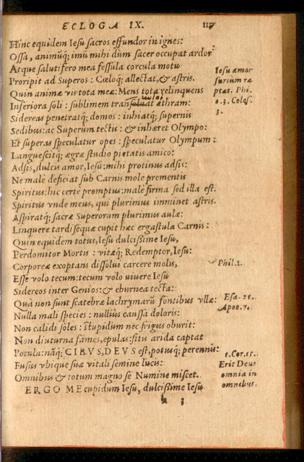 ECLOGA IX. 117
Hinc equidem Iesu sacros effundor in ignes:
Ossa, animúq; imũ mihi dum sacer occupat ardor
Atque salutifero mea fessula corcula motu
Proripit ad Superos: Cœloq; allectat, & astris.
Quin animæ vis tota meæ: Mens tota relinquens
Inferiora soli: sublimem æthram:
Sidereas penetratq; domos: inhiatq; supernis
Sedibus: ac Superum tectis: & inhæret Olympo:
Et superas speculatur opes: speculatur Olympum:
Languescitq; ægra studio pietatis amico:
Adsis, dulcis amor, Iesu: mihi protinus adsis:
Ne male deficiat sub Carnis mole prementis
Spiritus: hic certè promptus: malè firma sed illa est.
Spiritus vnde meus, qui plurimus imminet astris.
Aspiratq; sacræ Superorum plurimus aulæ:
Linquere tardisequæ cupit hæc ergastula Carnis:
Quin equidem totus, Iesu dulcissime Iesu,
Perdomitor Mortis: vitæq; Redemptor, Iesu:
Corporeæ exoptans dissolui carcere molis,
Esse volo tecum: tecum volo viuere Iesu
Sidereos inter Genios: & eburnea tecta:
Quà non sunt scatebræ lachrymarũ fontibus vllæ:
Nulla mali species: nullius caussa doloris:
Non calidi soles: stupidum nec frigus oburit:
Non diuturna fames, epulæ: sitis arida captat
Potula: nãq; CIBVS, DEVS est, potusq; perennis:
Fusus vbique sua vitali semine lucis:
Omnibus & totum magno se Numine miscet.
ERGO ME cupidum Iesu, dulcissime Iesu
Iesu amor
sursum raptat. Phi.
Coloss.
3.
Phil. 1.
Esa. 25.
Apoc. 7.
1. Cor. 15.
Erit Deus
omnia in
omnibus.